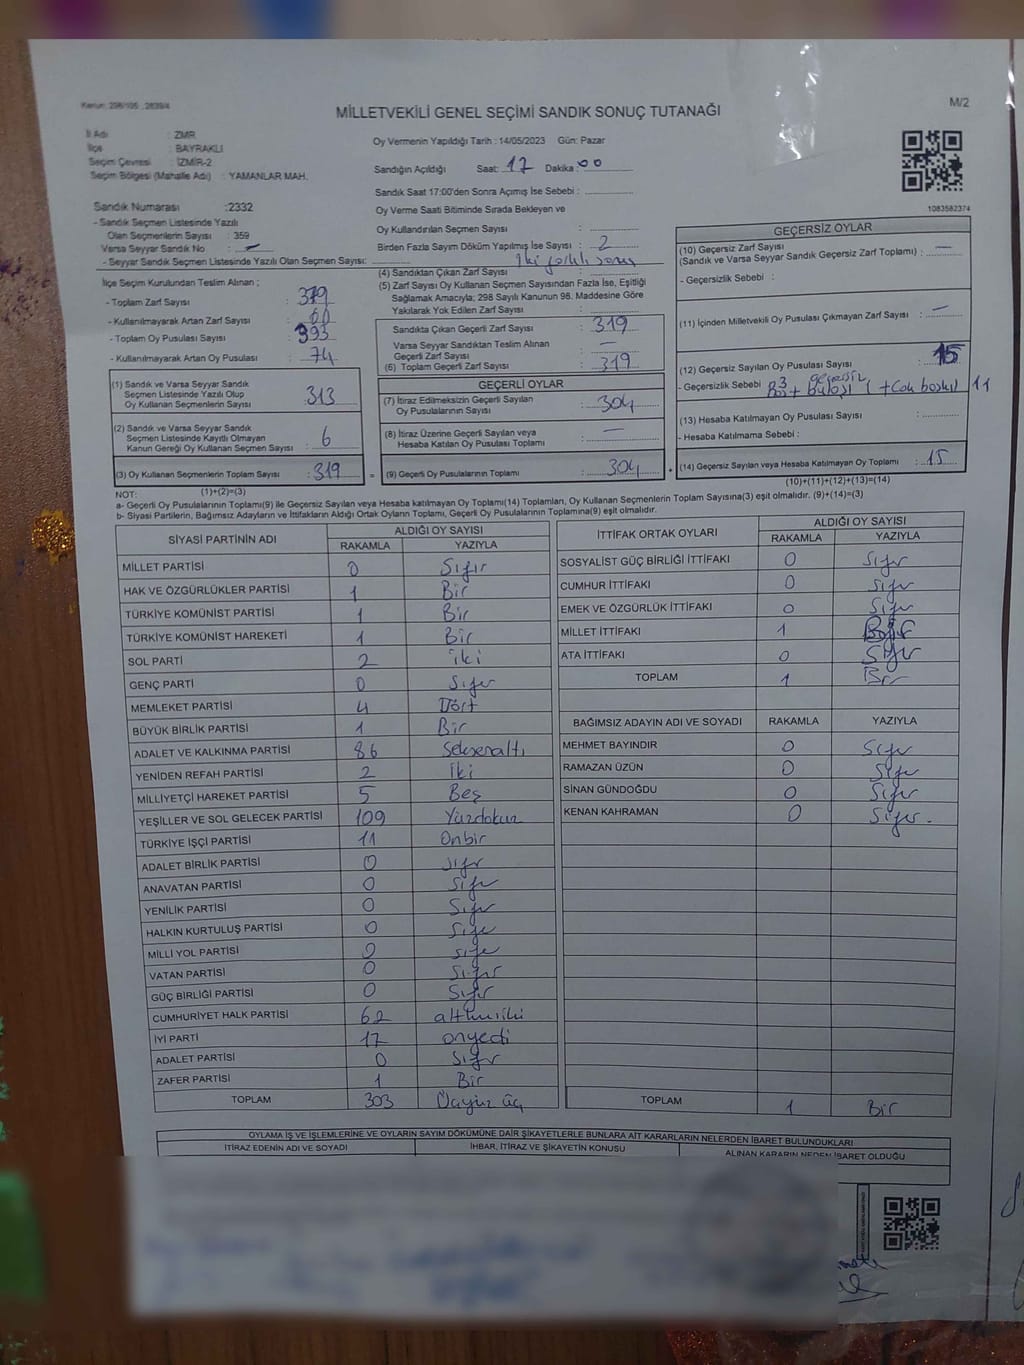 Kanun: 298/105 , 2839/4
M/2
MİLLETVEKİLİ GENEL SEÇİMİ SANDIK SONUÇ TUTANAĞI
İl Adı : İZMİR
İlçe : BAYRAKLI
Seçim Çevresi : İZMİR-2
Seçim Bölgesi (Mahalle Adı) : YAMANLAR MAH.
Oy Vermenin Yapıldığı Tarih : 14/05/2023 Gün: Pazar
Sandığın Açıldığı Saat: 17 Dakika: 00
Sandık Saat 17:00'den Sonra Açımış İse Sebebi :
Oy Verme Saati Bitiminde Sırada Bekleyen ve
Oy Kullandırılan Seçmen Sayısı :
Birden Fazla Sayım Döküm Yapılmış İse Sayısı : 2
İki farklı sonuç
1083582374
Sandık Numarası :2332
- Sandık Seçmen Listesinde Yazılı
Olan Seçmenlerin Sayısı : 359
Varsa Seyyar Sandık No : -
- Seyyar Sandık Seçmen Listesinde Yazılı Olan Seçmen Sayısı:
İlçe Seçim Kurulundan Teslim Alınan ;
- Toplam Zarf Sayısı : 379
- Kullanılmayarak Artan Zarf Sayısı : 60
- Toplam Oy Pusulası Sayısı : 393
- Kullanılmayarak Artan Oy Pusulası : 74
(1) Sandık ve Varsa Seyyar Sandık
Seçmen Listesinde Yazılı Olup
Oy Kullanan Seçmenlerin Sayısı : 313
(2) Sandık ve Varsa Seyyar Sandık
Seçmen Listesinde Kayıtlı Olmayan
Kanun Gereği Oy Kullanan Seçmen Sayısı : 6
(3) Oy Kullanan Seçmenlerin Toplam Sayısı : 319 =
(1)+(2)=(3)
(4) Sandıktan Çıkan Zarf Sayısı :
(5) Zarf Sayısı Oy Kullanan Seçmen Sayısından Fazla İse, Eşitliği
Sağlamak Amacıyla; 298 Sayılı Kanunun 98. Maddesine Göre
Yakılarak Yok Edilen Zarf Sayısı :
Sandıkta Çıkan Geçerli Zarf Sayısı : 319
Varsa Seyyar Sandıktan Teslim Alınan
Geçerli Zarf Sayısı : -
(6) Toplam Geçerli Zarf Sayısı : 319
GEÇERLİ OYLAR
(7) İtiraz Edilmeksizin Geçerli Sayılan
Oy Pusulalarının Sayısı : 304
(8) İtiraz Üzerine Geçerli Sayılan veya
Hesaba Katılan Oy Pusulası Toplamı : -
(9) Geçerli Oy Pusulalarının Toplamı : 304 +
GEÇERSİZ OYLAR
(10) Geçersiz Zarf Sayısı
(Sandık ve Varsa Seyyar Sandık Geçersiz Zarf Toplamı) : -
- Geçersizlik Sebebi :
(11) İçinden Milletvekili Oy Pusulası Çıkmayan Zarf Sayısı : -
(12) Geçersiz Sayılan Oy Pusulası Sayısı : 15
- Geçersizlik Sebebi : Boş 3 + geçersiz 1 + Çok baskıl 11
(13) Hesaba Katılmayan Oy Pusulası Sayısı :
- Hesaba Katılmama Sebebi :
(14) Geçersiz Sayılan veya Hesaba Katılmayan Oy Toplamı : 15
(10)+(11)+(12)+(13)=(14)
NOT:
a- Geçerli Oy Pusulalarının Toplamı(9) ile Geçersiz Sayılan veya Hesaba katılmayan Oy Toplamı(14) Toplamları, Oy Kullanan Seçmenlerin Toplam Sayısına(3) eşit olmalıdır. (9)+(14)=(3)
b- Siyasi Partilerin, Bağımsız Adayların ve İttifakların Aldığı Ortak Oyların Toplamı, Geçerli Oy Pusulalarının Toplamına(9) eşit olmalıdır.
SİYASİ PARTİNİN ADI ALDIĞI OY SAYISI
RAKAMLA YAZIYLA
MİLLET PARTİSİ 0 Sıfır
HAK VE ÖZGÜRLÜKLER PARTİSİ 1 Bir
TÜRKİYE KOMÜNİST PARTİSİ 1 Bir
TÜRKİYE KOMÜNİST HAREKETİ 1 Bir
SOL PARTİ 2 iki
GENÇ PARTİ 0 Sıfır
MEMLEKET PARTİSİ 4 Dört
BÜYÜK BİRLİK PARTİSİ 1 Bir
ADALET VE KALKINMA PARTİSİ 86 Seksenaltı
YENİDEN REFAH PARTİSİ 2 İki
MİLLİYETÇİ HAREKET PARTİSİ 5 Beş
YEŞİLLER VE SOL GELECEK PARTİSİ 109 Yüzdokuz
TÜRKİYE İŞÇİ PARTİSİ 11 Onbir
ADALET BİRLİK PARTİSİ 0 Sıfır
ANAVATAN PARTİSİ 0 Sıfır
YENİLİK PARTİSİ 0 Sıfır
HALKIN KURTULUŞ PARTİSİ 0 Sıfır
MİLLİ YOL PARTİSİ 0 Sıfır
VATAN PARTİSİ 0 Sıfır
GÜÇ BİRLİĞİ PARTİSİ 0 Sıfır
CUMHURİYET HALK PARTİSİ 62 altmışiki
İYİ PARTİ 17 onyedi
ADALET PARTİSİ 0 Sıfır
ZAFER PARTİSİ 1 Bir
TOPLAM 303 Üçyüz üç
İTTİFAK ORTAK OYLARI ALDIĞI OY SAYISI
RAKAMLA YAZIYLA
SOSYALİST GÜÇ BİRLİĞİ İTTİFAKI 0 Sıfır
CUMHUR İTTİFAKI 0 Sıfır
EMEK VE ÖZGÜRLÜK İTTİFAKI 0 Sıfır
MİLLET İTTİFAKI 1 Bir
ATA İTTİFAKI 0 Sıfır
TOPLAM 1 Bir
BAĞIMSIZ ADAYIN ADI VE SOYADI RAKAMLA YAZIYLA
MEHMET BAYINDIR 0 Sıfır
RAMAZAN ÜZÜN 0 Sıfır
SİNAN GÜNDOĞDU 0 Sıfır
KENAN KAHRAMAN 0 Sıfır.
TOPLAM 1 Bir
OYLAMA İŞ VE İŞLEMLERİNE VE OYLARIN SAYIM DÖKÜMÜNE DAİR ŞİKAYETLERLE BUNLARA AİT KARARLARIN NELERDEN İBARET BULUNDUKLARI
İTİRAZ EDENİN ADI VE SOYADI İHBAR, İTİRAZ VE ŞİKAYETİN KONUSU ALINAN KARARIN NEDEN İBARET OLDUĞU